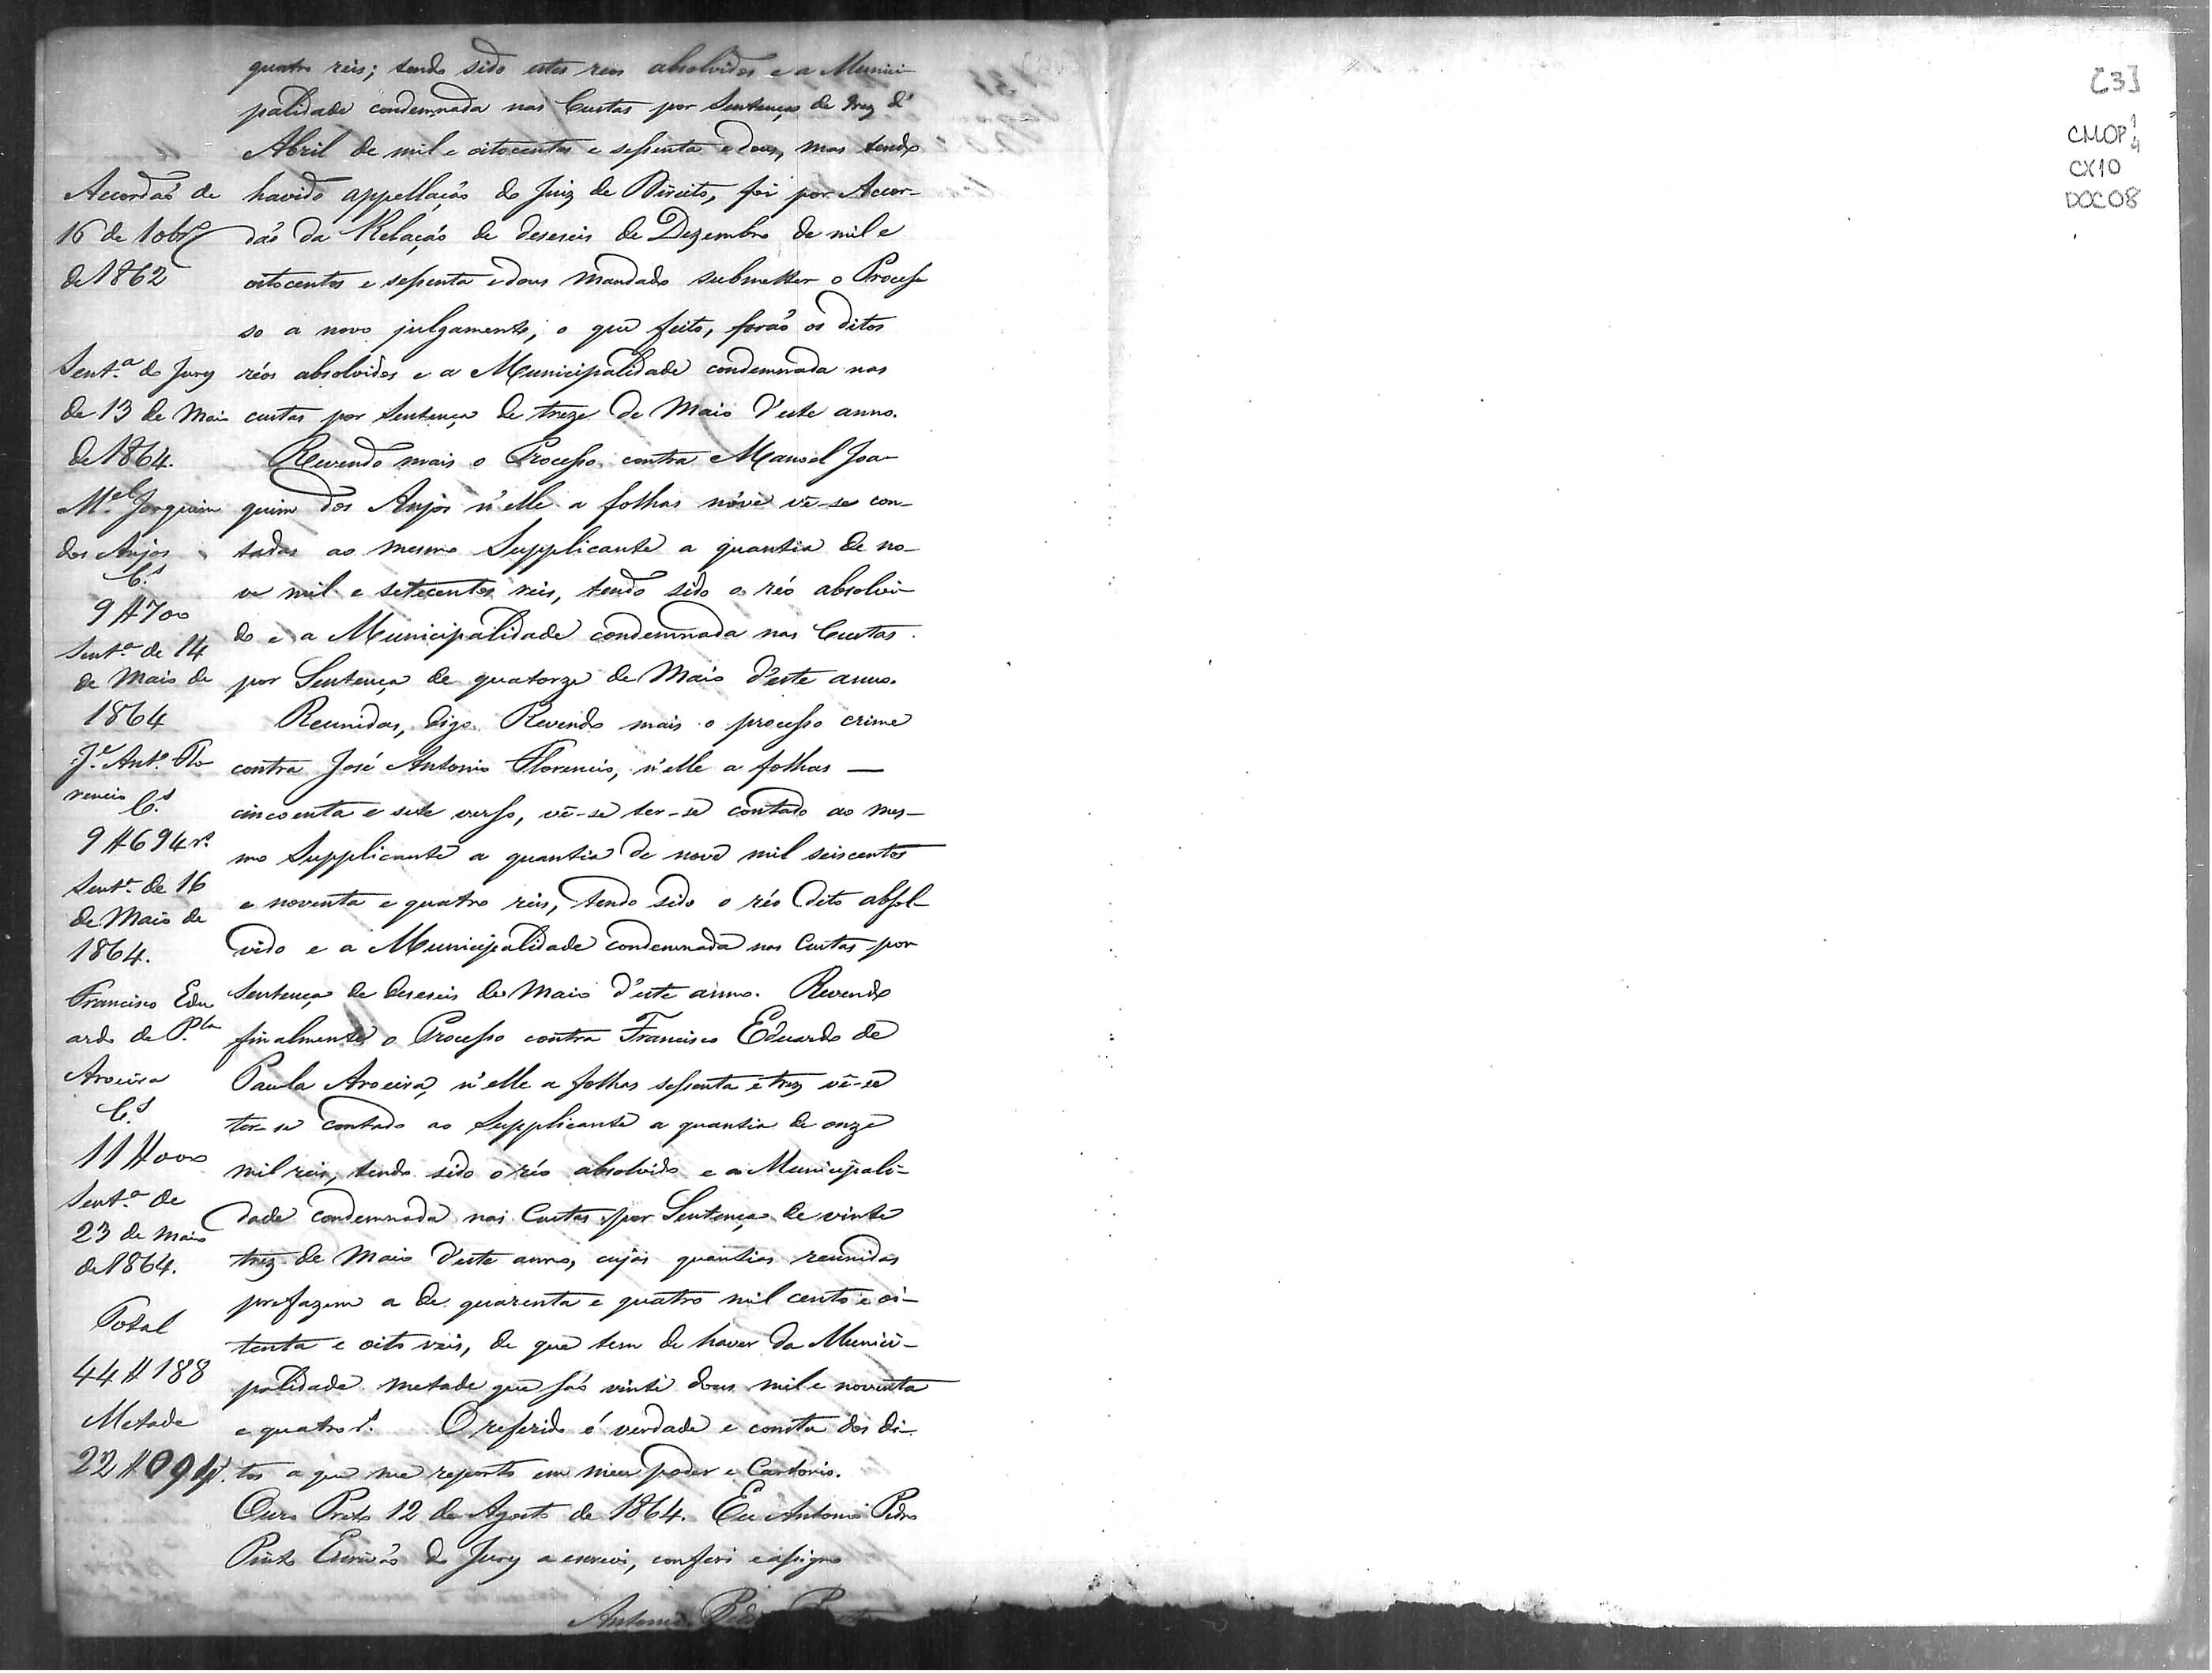 quatro reis; tendo sido estes reos absolvidos e a Munici-
palidade condemnada nas Custas por Sentença de trez d'
Abril de mil e oitocentos e sessenta e dous, mas tendo
havido appellação do Juiz de Direito, foi por Accor-
dão da Relação de deseseis de Dezembro de mil e
oitocentos e sessenta e dous mandado submetter o Proces-
so a novo julgamento, o que feito, forão os ditos
réos absolvidos e a Municipalidade condemnada nas
custas por Sentença de treze de Maio d'este anno.
Revendo mais o Processo contra Manoel Joa-
quim dos Anjos n'elle a folhas nove vê-se con-
tadas ao mesmo Supplicante a quantia de no-
ve mil e setecentos reis, tendo sido o réo absolvi-
do e a Municipalidade condemnada nas Custas
por Sentença de quatorze de Maio d'este anno.
Reunidas, digo Revendo mais o processo crime
contra José Antonio Florencio, n'elle a folhas —
cincoenta e sete verso, vê-se ter-se contado ao mes-
mo Supplicante a quantia de nove mil seiscentos
e noventa e quatro reis, tendo sido o réo dito absol-
vido e a Municipalidade condemnada nas Custas por
Sentença de deseseis de Maio d'este anno. Revendo
finalmente o Processo contra Francisco Eduardo de
Paula Aroeira, n'elle a folhas sessenta e trez vê-se
ter-se contado ao Supplicante a quantia de onze
mil reis, tendo sido o réo absolvido e a Municipali-
dade condemnada nas Custas por Sentença de vinte
trez de Maio d'este anno, cujas quantias reunidas
prefazem a de quarenta e quatro mil cento e oi-
tenta e oito reis, de que tem de haver da Munici-
palidade metade que são vinte dous mil e noventa
e quatro r.s O referido é verdade e consta dos di-
tos a que me reporto em meu poder e Cartorio.
Ouro Preto 12 de Agosto de 1864. Eu Antonio Pedro
Pinto Escrivão do Jury a escrevi, conferi e assigno
Antonio Pedro Pinto
Accordão de
16 de 10br.o
de 1862
Sent.a do Jury
de 13 de Maio
de 1864.
M.el Joaquim
dos Anjos
C.s
9#700
Sent.a de 14
de Maio de
1864
J.e Ant.o Flo
rencio C.s
9#694 r.s
Sent.a de 16
de Maio de
1864.
Francisco Edu
ardo de P.la
Aroeira
C.s
11#000
Sent.a de
23 de Maio
de 1864.
Total
44#188
Metade
22#094
[3]
CMOP 1/4
CX10
DOC08